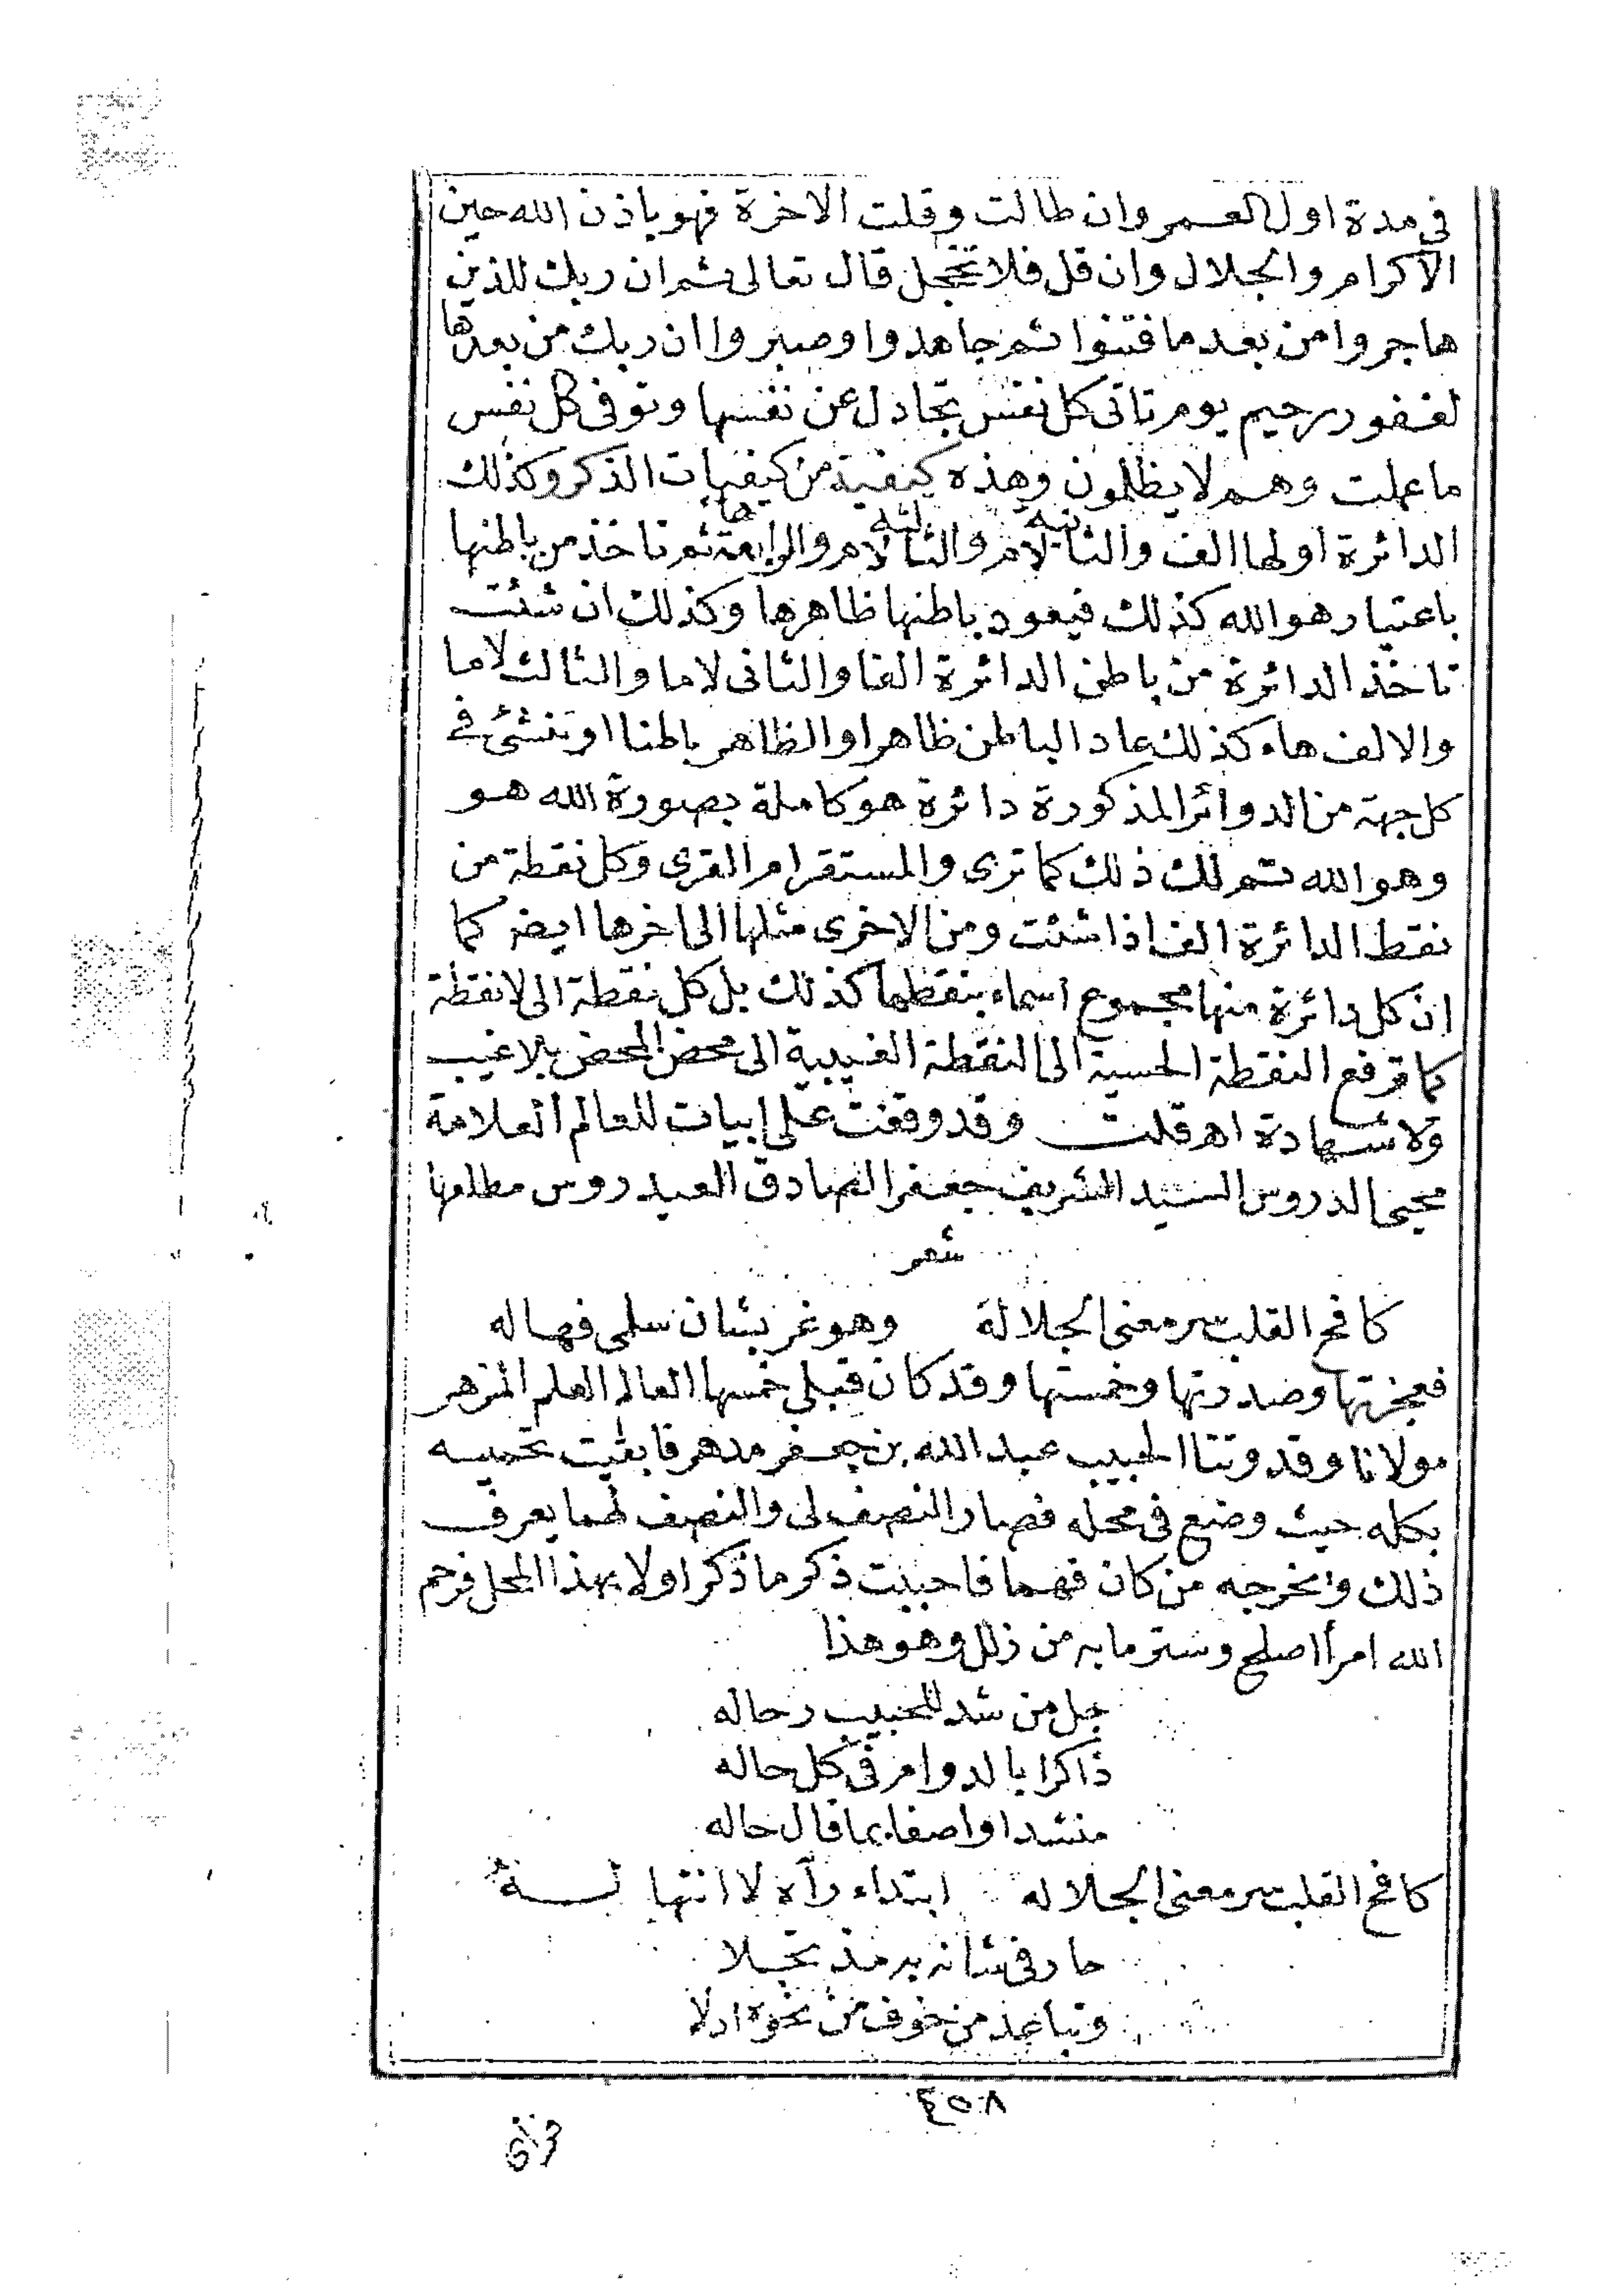 في مدة اول العمر وان طالت وقلت الاخرة فهو باذن الله حين
الاكرام والجلال وان قل فلا تخجل قال تعالى ثم ان ربك للذين
هاجروا من بعد ما فتنوا ثم جاهدوا وصبروا ان ربك من بعدها
لغفور رحيم يوم تاتى كل نفس تجادل عن نفسها وتوفى كل نفس
ما عملت وهم لا يظلمون وهذه كيفية من كيفيات الذكر وكذلك
الدائرة اولها الف والثانيه لام والثالثه لام والرابعة ها ثم تاخذ من باطنها
باعتبار هو الله كذلك فيعود باطنها ظاهرها وكذلك ان شئت
تاخذ الدائرة من باطن الدائرة الفا والثانى لاما والثالث لاما
والالف هاء كذلك عاد الباطن ظاهرا والظاهر باطنا او تنشئ في
كل جهة من الدوائر المذكورة دائرة هو كاملة بصورة الله هو
وهو الله تم لك ذلك كما ترى والمستقر ام القرى وكل نقطة من
نقط الدائرة الف اذا شئت ومن الاخرى مثلها الى اخرها ايضا كما
ان كل دائرة منها مجموع اسماء بنقطها كذلك بل كل نقطة الى لا نقطة
كما ترفع النقطة الحسية الى النقطة الغيبية الى محض المحض بلا غيب
ولا شهادة اهـ قلت وقد وقفت على ابيات للعالم العلامة
محيى الدروس السيد الشريف جعفر الصادق العيدروس مطلعها
شعر
كافح القلب سر معنى الجلالة وهو غر بشان سلمى فهاله
فعجزتها وصدرتها وخمستها وقد كان قبلى خمسها العالم العلم المزهر
مولانا وقدوتنا الحبيب عبد الله بن جعفر مدهر فابقيت تخميسه
بكله حيث وضع فى محله فصار النصف لى والنصف لهما يعرف
ذلك ويخرجه من كان فهما فاحببت ذكر ما ذكر اولا بهذا المحل فرحم
الله امرأ اصلح وستر ما به من زلل وهو هذا
جل من شد للحبيب رحاله
ذاكرا بالدوام فى كل حاله
منشدا واصفا بما قال حاله
كافح القلب سر معنى الجلاله ابتداء رآه لا انتها له
حار فى شانه به مذ تجلا
وتباعد من خوف من نحوه ادلا
٤٥٨